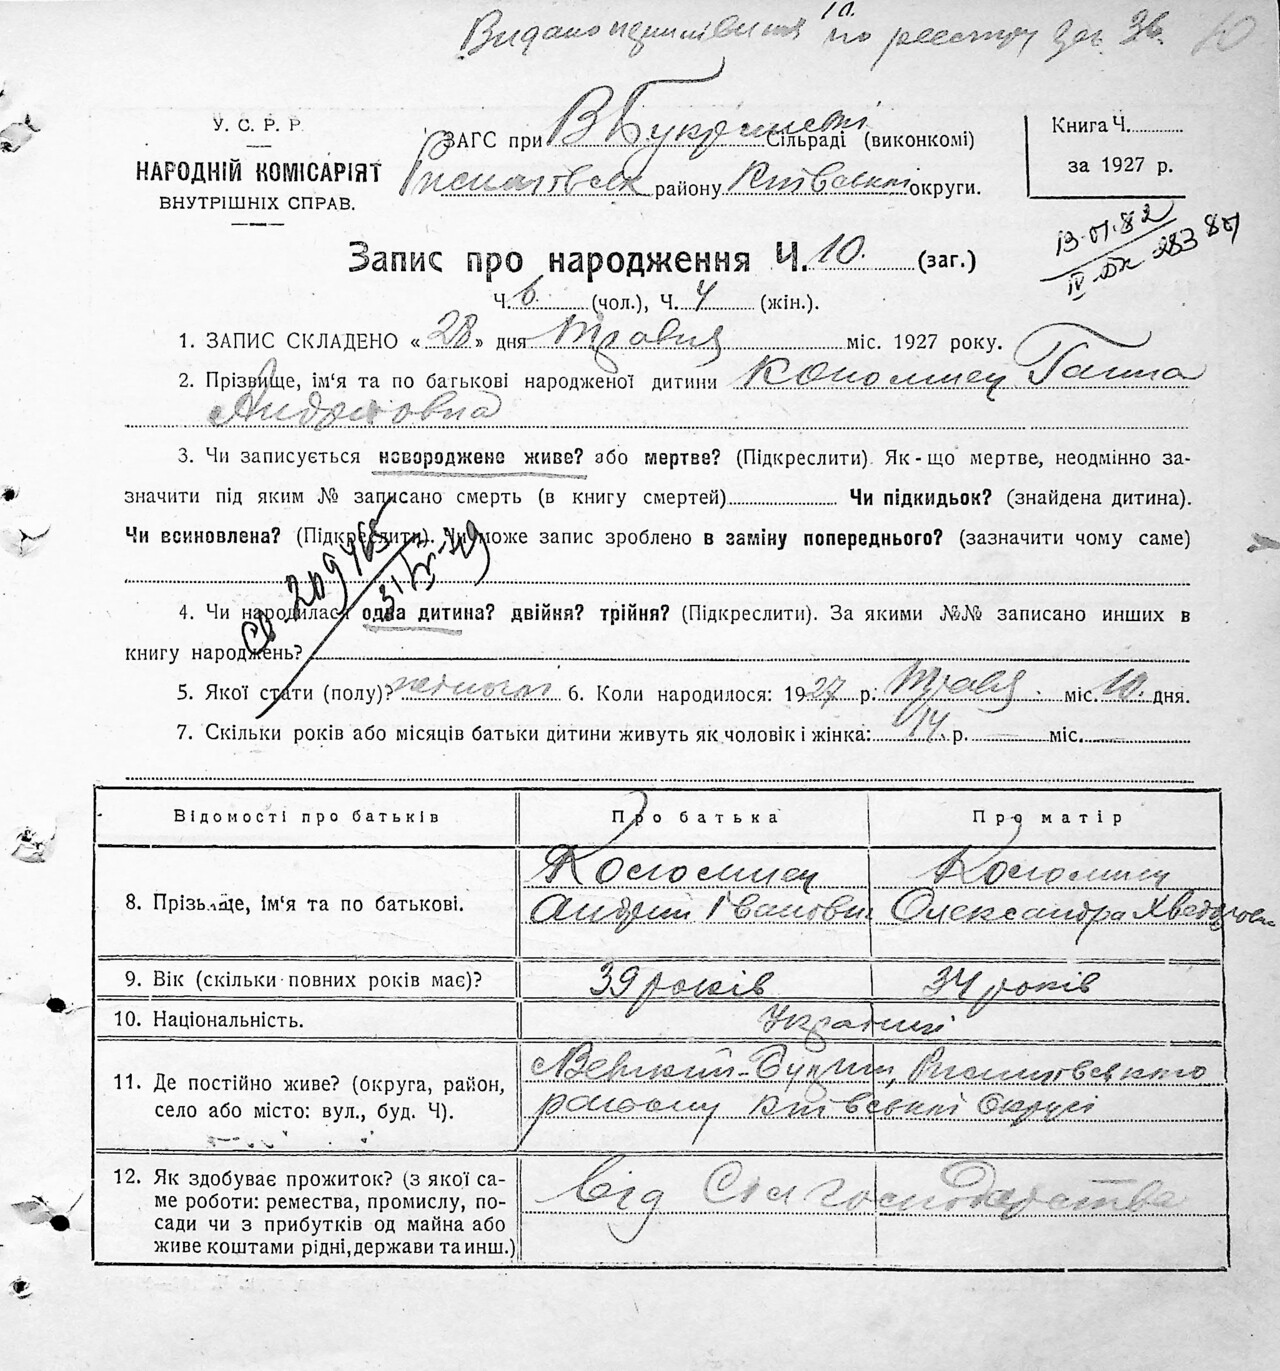 по реєстру
У. С. Р. Р.
НАРОДНІЙ КОМІСАРІЯТ
ВНУТРІШНІХ СПРАВ.
ЗАГС при Сільраді (виконкомі)
району округи.
Книга Ч.
за 1927 р.
13.VI.82
Запис про народження Ч. 10. (заг.)
Ч. 6 (чол.), Ч. 4 (жін.).
1. ЗАПИС СКЛАДЕНО « 28 » дня Травня міс. 1927 року.
2. Прізвище, ім'я та по батькові народженої дитини Коломиец Ганна
Андріовна
3. Чи записується новороджене живе? або мертве? (Підкреслити). Як-що мертве, неодмінно за-
значити під яким № записано смерть (в книгу смертей) Чи підкидьок? (знайдена дитина).
Чи всиновлена? (Підкреслити). Чи може запис зроблено в заміну попереднього? (зазначити чому саме)
209465
4. Чи народилася одна дитина? двійня? трійня? (Підкреслити). За якими №№ записано инших в
книгу народжень?
5. Якої стати (полу)? жіночої 6. Коли народилося: 1927 р. Травня міс. 10. дня.
7. Скільки років або місяців батьки дитини живуть як чоловік і жінка: 14 р. — міс. —
Відомості про батьків Про батька Про матір
8. Прізвище, ім'я та по батькові.
Коломиец Коломиец
Андрій Іванович Олександра Хведоровна
9. Вік (скільки повних років має)? 39 років 34 років
10. Національність. Україниі
11. Де постійно живе? (округа, район,
село або місто: вул., буд. Ч).
району Київської Округи
12. Як здобуває прожиток? (з якої са-
ме роботи: ремества, промислу, по-
сади чи з прибутків од майна або
живе коштами рідні, держави та инш.)
від Сілгосподарства